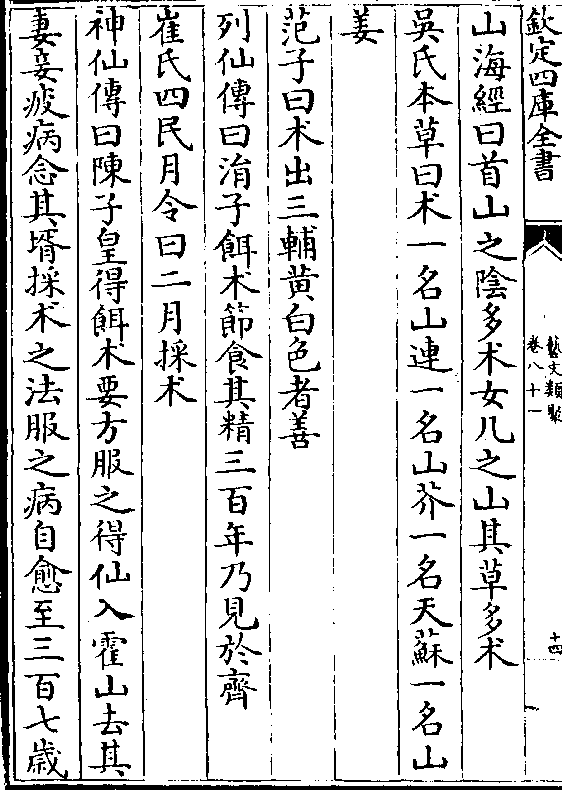 欽定四庫全書
藝文類聚
卷八十一
十四
山海經曰首山之陰多术女几之山其草多术
吳氏本草曰术一名山連一名山芥一名天蘇一名山
姜
范子曰术出三輔黄白色者善
列仙傳曰涓子餌术節食其精三百年乃見於齊
崔氏四民月令曰二月採术
神仙傳曰陳子皇得餌木要方服之得仙入霍山去其
妻妾疲病念其壻採术之法服之病自愈至三百七歳